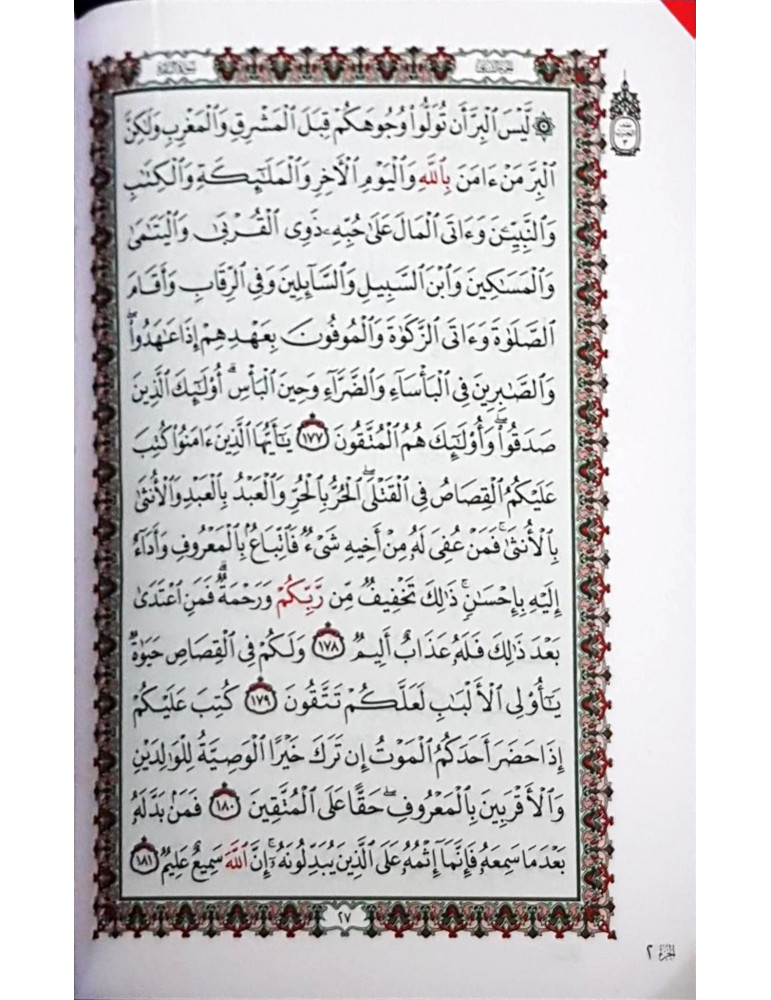 الجزء الثاني
سورة البقرة
نصف الحزب ٣
۞ لَّيْسَ ٱلْبِرَّ أَن تُوَلُّوا۟ وُجُوهَكُمْ قِبَلَ ٱلْمَشْرِقِ وَٱلْمَغْرِبِ وَلَـٰكِنَّ
ٱلْبِرَّ مَنْ ءَامَنَ بِٱللَّهِ وَٱلْيَوْمِ ٱلْـَٔاخِرِ وَٱلْمَلَـٰٓئِكَةِ وَٱلْكِتَـٰبِ
وَٱلنَّبِيِّـۧنَ وَءَاتَى ٱلْمَالَ عَلَىٰ حُبِّهِۦ ذَوِى ٱلْقُرْبَىٰ وَٱلْيَتَـٰمَىٰ
وَٱلْمَسَـٰكِينَ وَٱبْنَ ٱلسَّبِيلِ وَٱلسَّآئِلِينَ وَفِى ٱلرِّقَابِ وَأَقَامَ
ٱلصَّلَوٰةَ وَءَاتَى ٱلزَّكَوٰةَ وَٱلْمُوفُونَ بِعَهْدِهِمْ إِذَا عَـٰهَدُوا۟ ۖ
وَٱلصَّـٰبِرِينَ فِى ٱلْبَأْسَآءِ وَٱلضَّرَّآءِ وَحِينَ ٱلْبَأْسِ ۗ أُو۟لَـٰٓئِكَ ٱلَّذِينَ
صَدَقُوا۟ ۖ وَأُو۟لَـٰٓئِكَ هُمُ ٱلْمُتَّقُونَ ١٧٧ يَـٰٓأَيُّهَا ٱلَّذِينَ ءَامَنُوا۟ كُتِبَ
عَلَيْكُمُ ٱلْقِصَاصُ فِى ٱلْقَتْلَى ۖ ٱلْحُرُّ بِٱلْحُرِّ وَٱلْعَبْدُ بِٱلْعَبْدِ وَٱلْأُنثَىٰ
بِٱلْأُنثَىٰ ۚ فَمَنْ عُفِىَ لَهُۥ مِنْ أَخِيهِ شَىْءٌ فَٱتِّبَاعٌۢ بِٱلْمَعْرُوفِ وَأَدَآءٌ
إِلَيْهِ بِإِحْسَـٰنٍ ۗ ذَٰلِكَ تَخْفِيفٌ مِّن رَّبِّكُمْ وَرَحْمَةٌ ۗ فَمَنِ ٱعْتَدَىٰ
بَعْدَ ذَٰلِكَ فَلَهُۥ عَذَابٌ أَلِيمٌ ١٧٨ وَلَكُمْ فِى ٱلْقِصَاصِ حَيَوٰةٌ
يَـٰٓأُو۟لِى ٱلْأَلْبَـٰبِ لَعَلَّكُمْ تَتَّقُونَ ١٧٩ كُتِبَ عَلَيْكُمْ
إِذَا حَضَرَ أَحَدَكُمُ ٱلْمَوْتُ إِن تَرَكَ خَيْرًا ٱلْوَصِيَّةُ لِلْوَٰلِدَيْنِ
وَٱلْأَقْرَبِينَ بِٱلْمَعْرُوفِ ۖ حَقًّا عَلَى ٱلْمُتَّقِينَ ١٨٠ فَمَنۢ بَدَّلَهُۥ
بَعْدَمَا سَمِعَهُۥ فَإِنَّمَآ إِثْمُهُۥ عَلَى ٱلَّذِينَ يُبَدِّلُونَهُۥٓ ۚ إِنَّ ٱللَّهَ سَمِيعٌ عَلِيمٌ ١٨١
٢٧
الجزء ٢